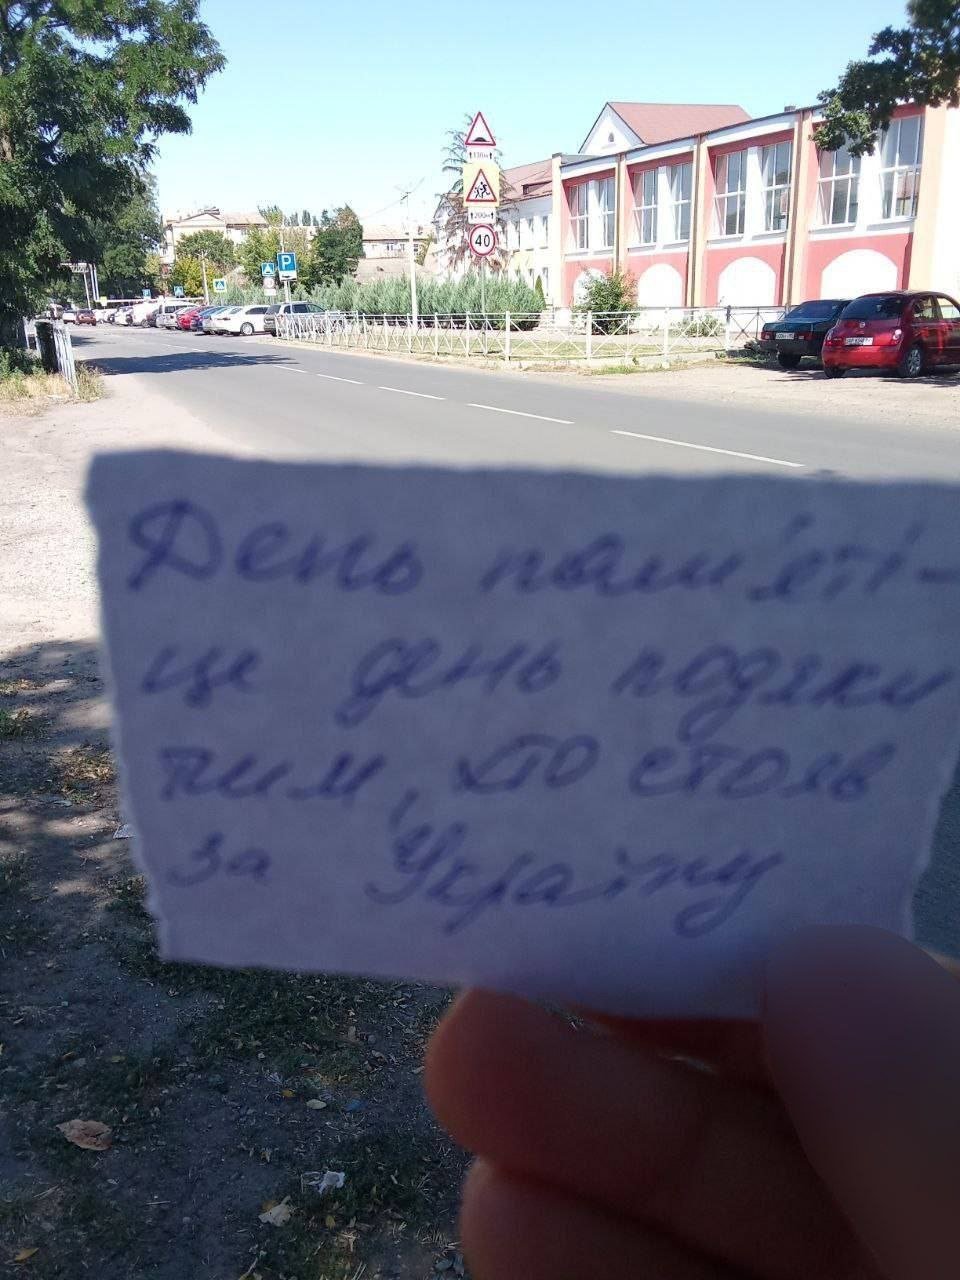 130м
200м
40
P
День пам'яті -
це день подяки
тим, хто стояв
за Україну